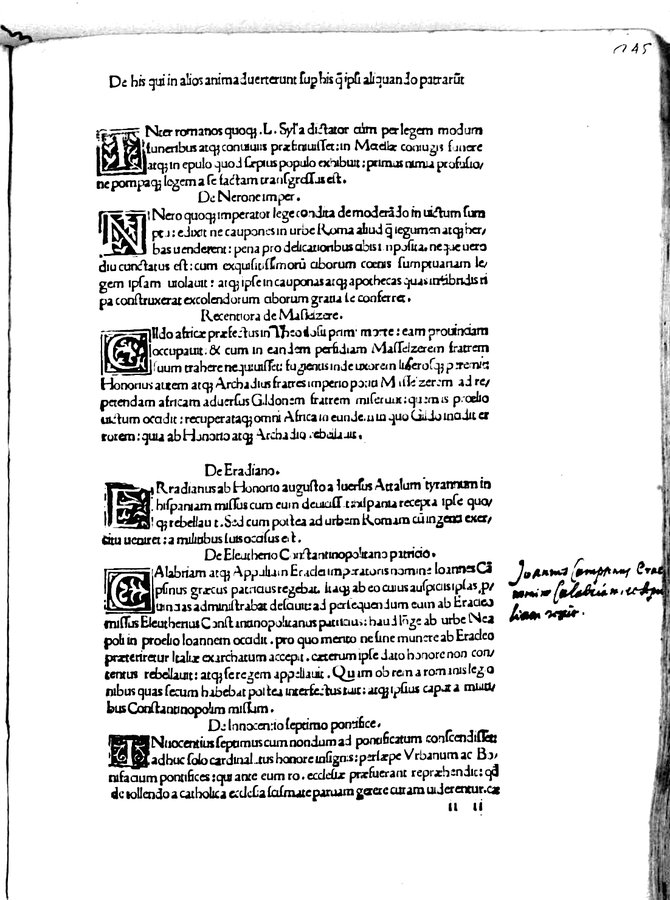 245
De his qui in alios animaduerterunt sup his q̃ ipsi aliquando patrarũt
INter romanos quoq; .L. Sylla dictator cũm per legem modum
funeribus atq; conuiuiis præfiniuisset: in Metellæ coniugis funere
atq; in epulo quod sepius populo exhibuit: primus nimia profusio/
ne pompaq; legem a se factam transgressus est.
De Nerone imper.
NEro quoq; imperator lege condita de moderãdo in uictum sum
ptu: edixit ne caupones in urbe Roma aliud q̃ legumen atq; her/
bas uenderent: pena pro delicatioribus cibis imposita. neque uero
diu cunctatus est: cum exquisitissimorũ ciborum coenis sumptuariam le/
gem ipsam uiolauit: atq; ipse in cauponas atq; apothecas quas in tibridis ri
pa construxerat excolendorum ciborum gratia se conferret.
Recentiora de Maskizere.
GIldo africæ præfectus in Theodosii primi morte: eam prouinciam
occupauit. & cum in eandem perfidiam Masselzerem fratrem
suum trahere nequiuisset: fugiens inde uxorem liberosq; peremit.
Honorius autem atq; Archadius fratres imperio potiti Masselzerem ad re/
petendam africam aduersus Gildonem fratrem miserunt: quem is proelio
uictum occidit: recuperataq; omni Africa in eundem in quo Gildo incidit er
rorem: quia ab Honorio atq; Archadio rebellauit.
De Eradiano.
ERradianus ab Honorio augusto aduersus Attalum tyrannum in
hispaniam missus cum eum deuicisset hispania recepta ipse quo/
q; rebellauit. Sed cum postea ad urbem Romam cũ ingenti exer/
citu ueniret: a militibus suis occisus est.
De Eleutherio Constantinopolitano patricio.
CAlabriam atq; Appuliam Eraclei imperatoris nomine Ioannes Cã
psinus græcus patricius regebat. Itaq; ab eo cuius auspiciis ipsas p/
uincias administrabat desciuit: ad persequendum eum ab Eracleo
missus Eleutherius Constantinopolitanus patricius: haud lõge ab urbe Nea
poli in proelio Ioannem occidit. pro quo merito ne sine munere ab Eracleo
præteriretur Italiæ exarchatum accepit. cæterum ipse dato honore non con/
tentus rebellauit: atq; se regem appellauit. Quam ob rem a romanis legio
nibus quas secum habebat postea interfectus fuit: atq; ipsius caput a militi/
bus Constantinopolim missum.
Joannis Campsinus Erac
nomine Calabriam, et Apu
liam rexit.
De Innocentio septimo pontifice.
INnocentius septimus cum nondum ad pontificatum conscendisset
adhuc solo cardinalatus honore insignis: persæpe Vrbanum ac Bo/
nifacium pontifices: qui ante eum ro. ecclesiæ præfuerant repræhendit: qd
de tollendo a catholica ecclesia scismate paruam gerere curam uiderentur. cæ
u ii